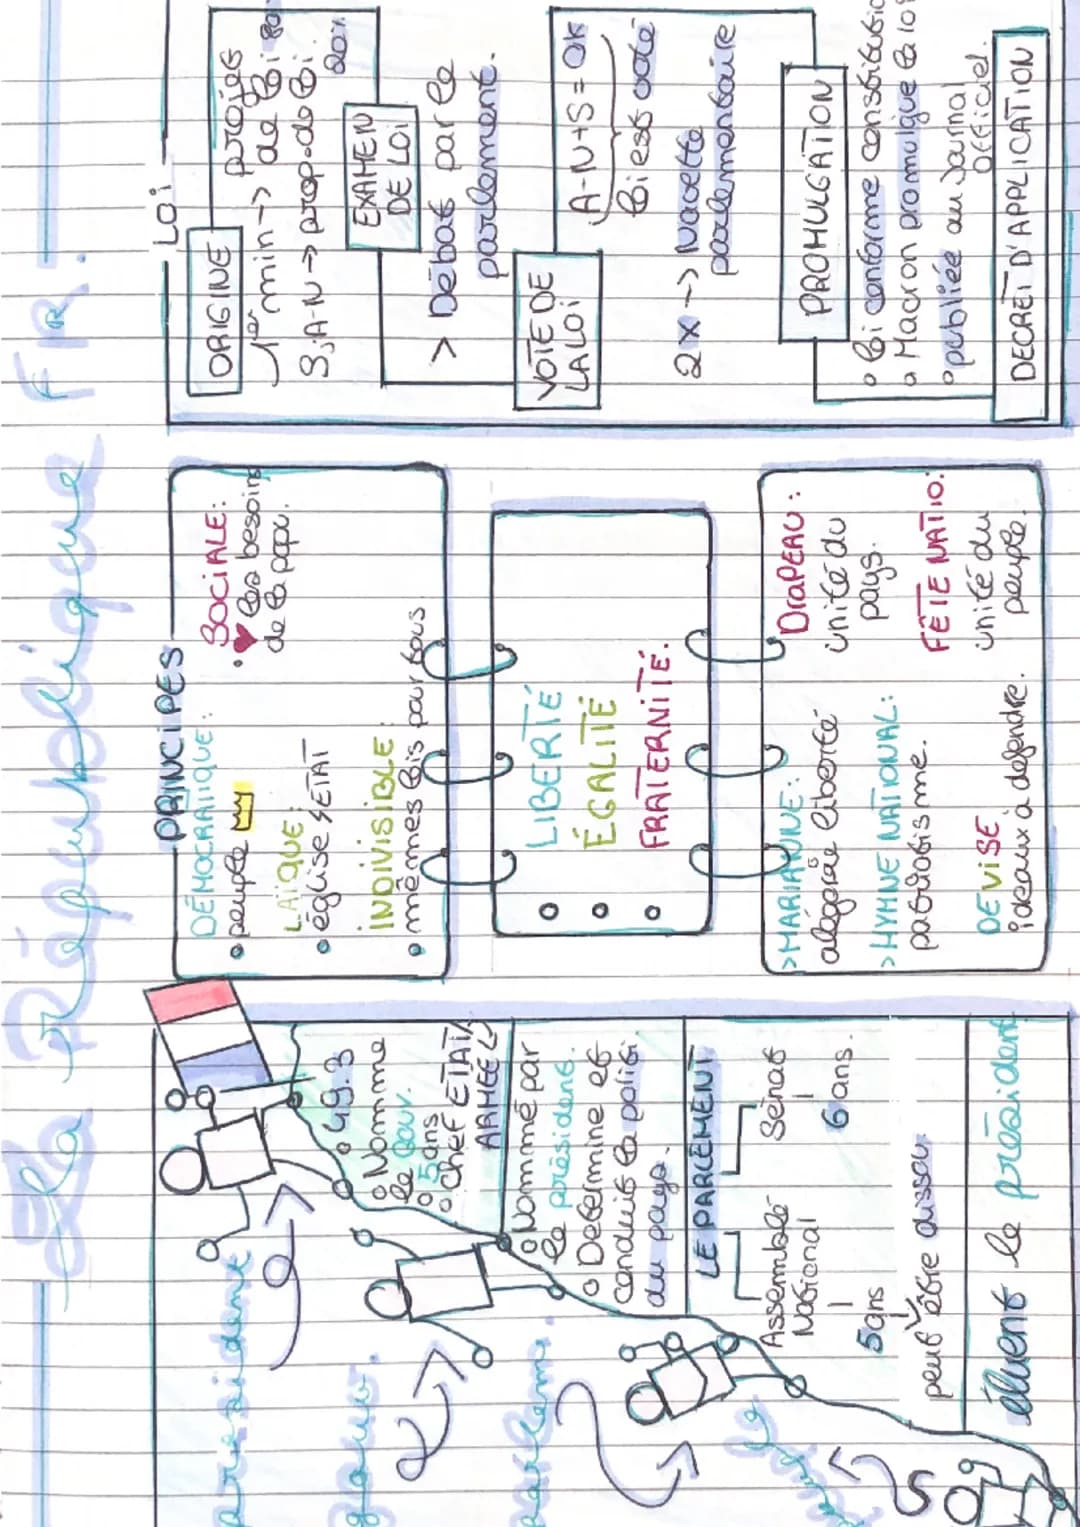 La République FR.
président
gouv.
parlem.
le
• 49.3
• Nomme
le Gouv.
• 5 ans
• Chef ETAT/
ARMÉE
• Nommé par
le président.
• Détermine et
conduit la politi
du pays.
LE PARLEMENT
Assemblé
National
5 ans
peut être dissou
Sénat
6 ans.
éluent le président
PRINCIPES
DÉMOCRATIQUE:
• peuple
LAÏQUE:
• église ETAT
INDIVISIBLE:
• mêmes lois pour tous
SOCIALE:
• les besoins
de la popu.
LIBERTÉ
ÉGALITÉ
FRATERNITÉ.
>MARIANNE:
alégorie liberté
>HYMNE NATIONAL:
patriotisme.
DEVISE
idéaux à défendre.
DraPEAU:
unité du
pays.
FÊTE NATIO:
unité du
peuple.
LOI
ORIGINE
1er min -> projet
de loi
S; A-N -> propo de loi.
EXAMEN
DE LOI
> Débat par le
parlement.
VOTE DE
LA LOI
A-N+S = OK
loi est voté
2x -> Navette
parlementaire
PROMULGATION
• loi conforme constitutio
• Macron promulgue la loi
• publiée au Journal
Officiel.
DECRET D'APPLICATION